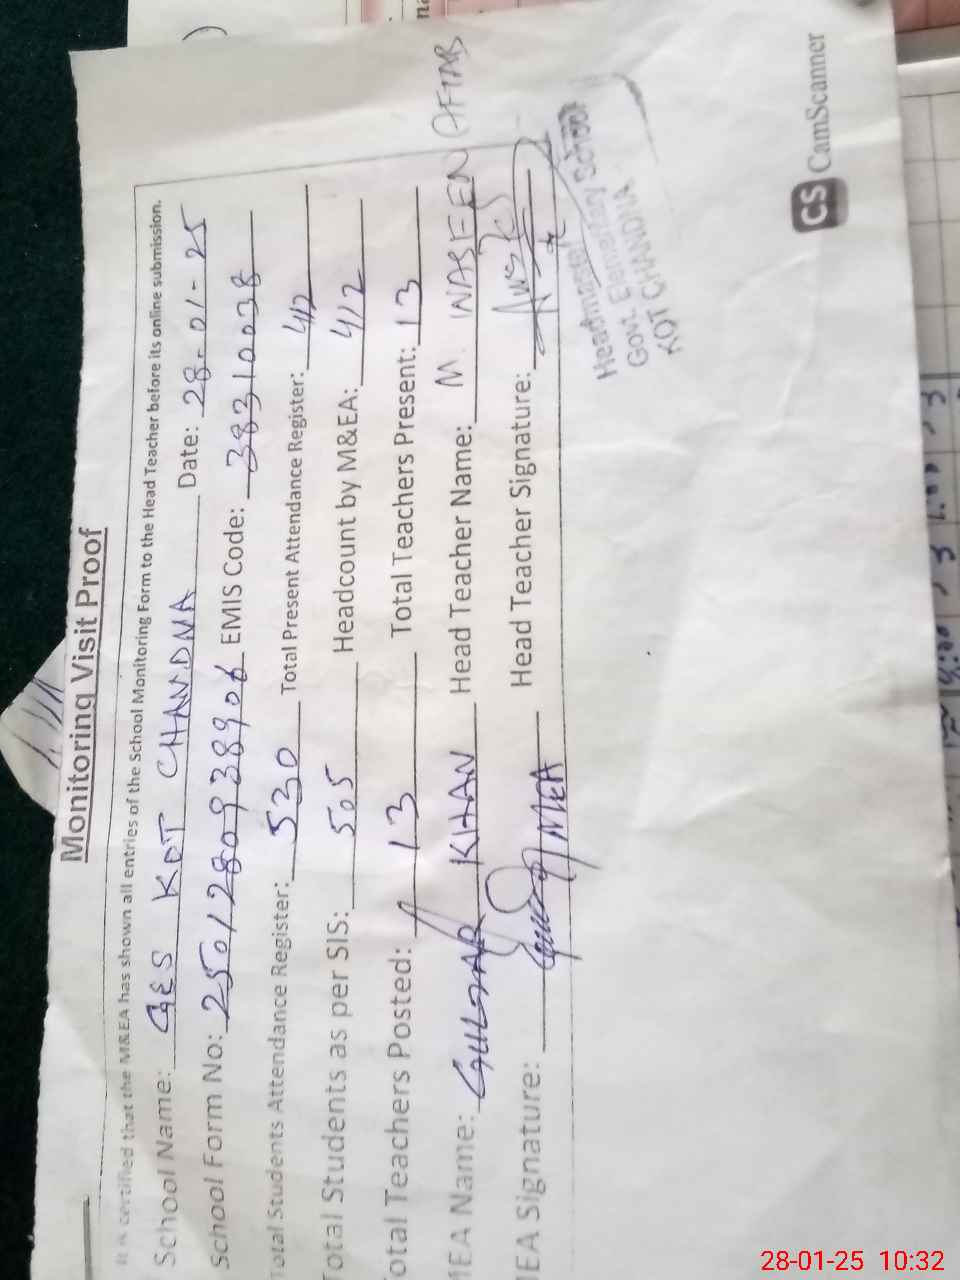 Monitoring Visit Proof
It is certified that the M&EA has shown all entries of the School Monitoring Form to the Head Teacher before its online submission.
School Name: GES KOT CHANDNA Date: 28-01-25
School Form No: 2501280938906 EMIS Code: 38310038
Total Students Attendance Register: 530 Total Present Attendance Register: 412
Total Students as per SIS: 505 Headcount by M&EA: 412
Total Teachers Posted: 13 Total Teachers Present: 13
MEA Name: GULZAR KHAN Head Teacher Name: M. WASEEM AFTAB
MEA Signature: MEA Head Teacher Signature:
Headmaster
Govt. Elementary School
KOT CHANDNA
CS CamScanner
28-01-25 10:32